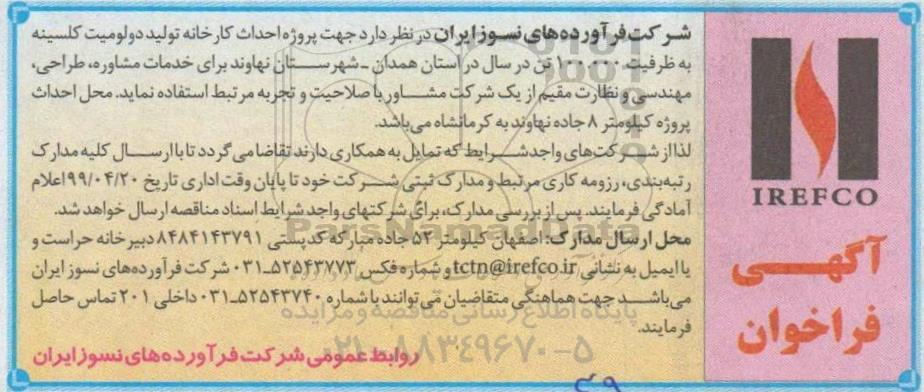 شرکت فرآورده‌های نسوز ایران در نظر دارد جهت پروژه احداث کارخانه تولید دولومیت کلسینه
به ظرفیت ۱۰۰.۰۰۰ تن در سال در استان همدان - شهرستان نهاوند برای خدمات مشاوره، طراحی،
مهندسی و نظارت مقیم از یک شرکت مشاور با صلاحیت و تجربه مرتبط استفاده نماید. محل احداث
پروژه کیلومتر ۸ جاده نهاوند به کرمانشاه می‌باشد.
لذا از شرکت‌های واجد شرایط که تمایل به همکاری دارند تقاضا می گردد تا با ارسال کلیه مدارک
رتبه‌بندی، رزومه کاری مرتبط و مدارک ثبتی شرکت خود تا پایان وقت اداری تاریخ ۹۹/۰۴/۲۰ اعلام
آمادگی فرمایند. پس از بررسی مدارک، برای شرکتهای واجد شرایط اسناد مناقصه ارسال خواهد شد.
محل ارسال مدارک: اصفهان کیلومتر ۵۲ جاده مبارکه کدپستی ۸۴۸۴۱۴۳۷۹۱ دبیرخانه حراست و
یا ایمیل به نشانی tctn@irefco.ir و شماره فکس ۵۲۵۴۳۷۷۳-۰۳۱ شرکت فرآورده‌های نسوز ایران
می‌باشد جهت هماهنگی متقاضیان می توانند با شماره ۵۲۵۴۳۷۴۰-۰۳۱ داخلی ۲۰۱ تماس حاصل
فرمایند.
روابط عمومی شرکت فرآورده‌های نسوز ایران
IREFCO
آگهی
فراخوان
ParsNamadData
پایگاه اطلاع رسانی مناقصه و مزایده
۰۲۱-۸۸۳۴۹۶۷۰-۵